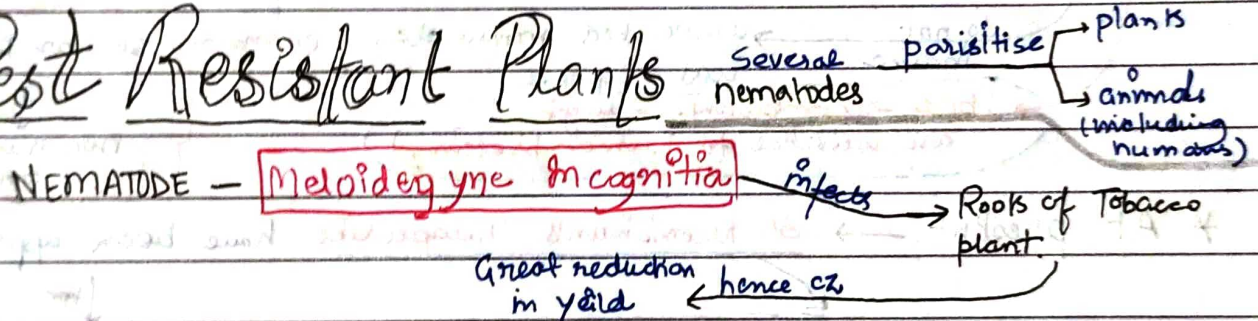 est Resistant Plants
Several nematodes parisitise plants
animals (including humans)
NEMATODE - Meloidegyne Incognitia infects Roots of Tobacco plant.
hence cz Great reduction in yeild